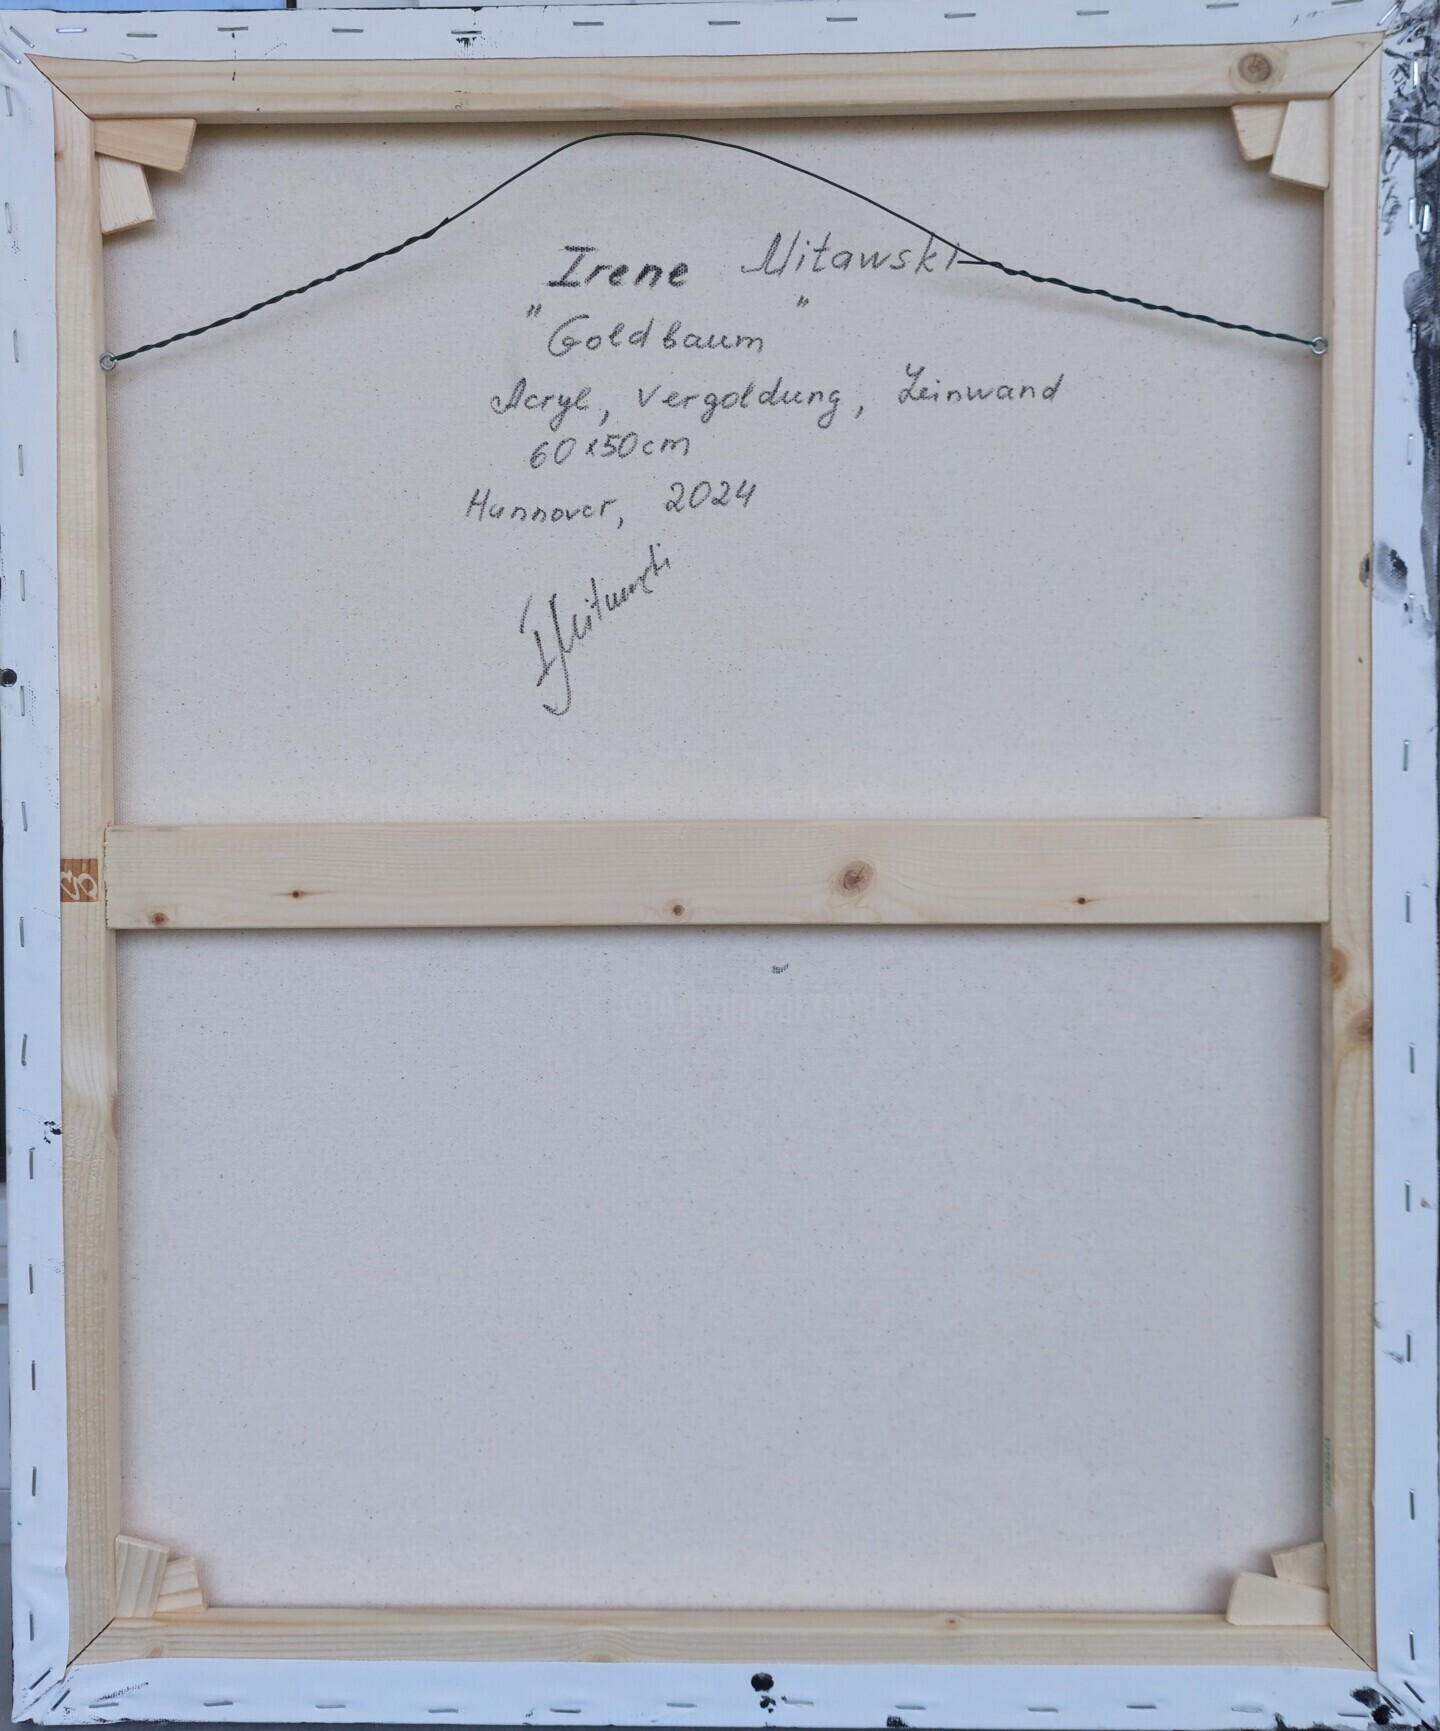 Irene Mitawski
"Goldbaum"
Acryl, Vergoldung, Leinwand
60x50cm
Hannover, 2024
IMitawski
50